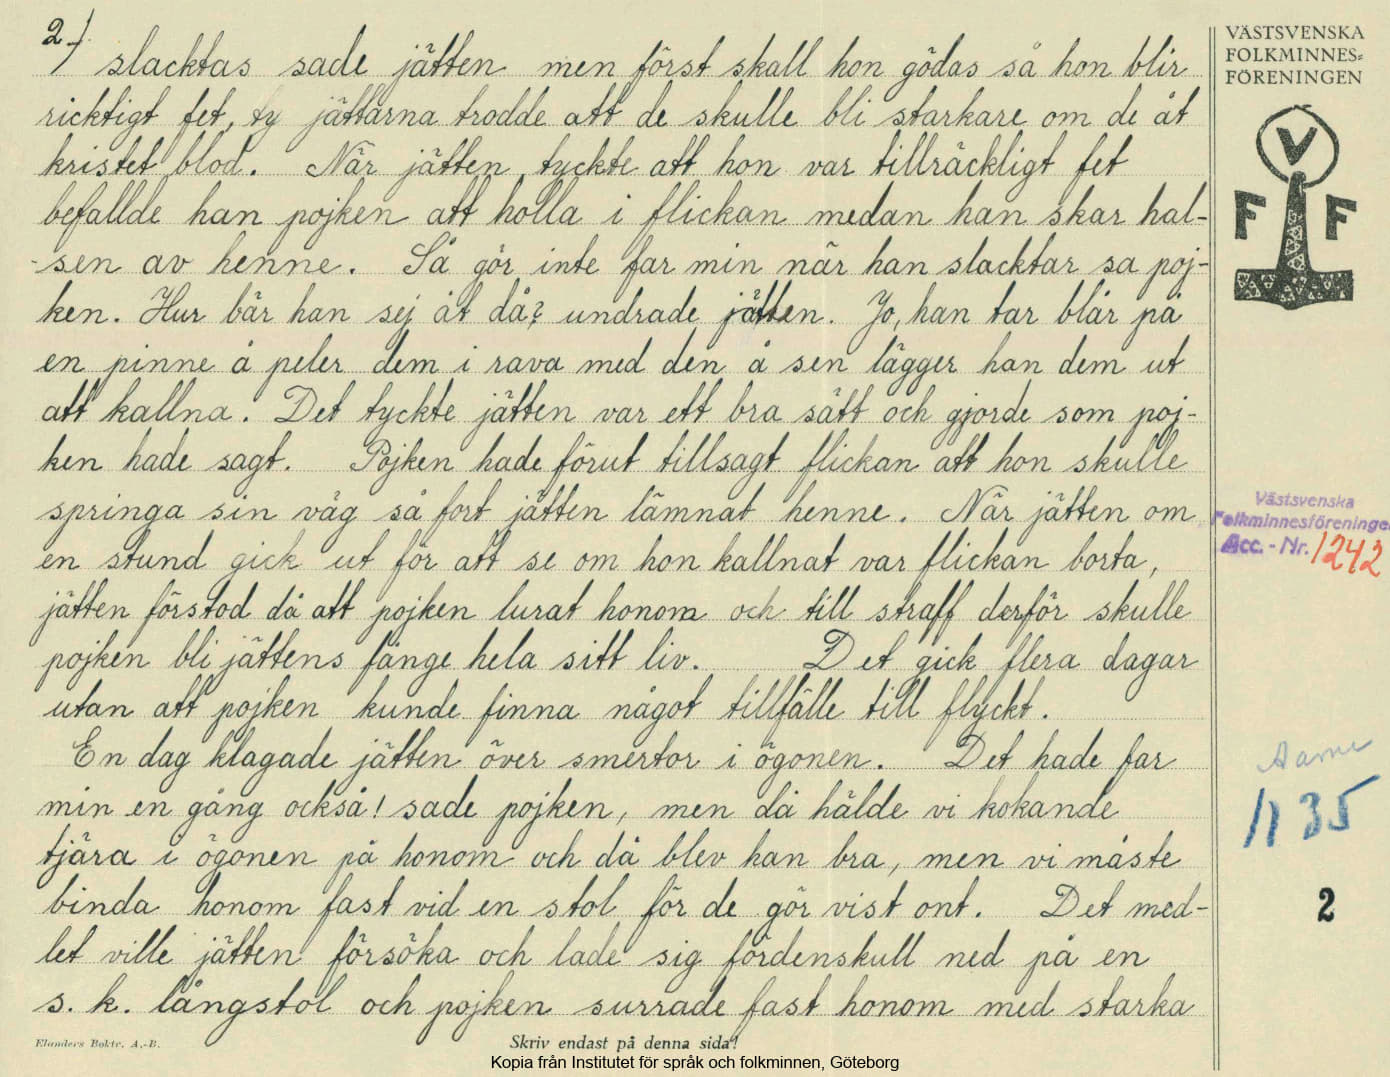 2.)
slacktas sade jätten men först skall hon gödas så hon blir
ricktigt fet, ty jättarna trodde att de skulle bli starkare om de åt
kristet blod. När jätten tyckte att hon var tillräckligt fet
befallde han pojken att holla i flickan medan han skar hal-
-sen av henne. Så gör inte far min när han slacktar sa poj-
ken. Hur bär han sej åt då? undrade jätten. Jo, han tar blår på
en pinne å peler dem i rava med den å sen lägger han dem ut
att kallna. Det tyckte jätten var ett bra sätt och gjorde som poj-
ken hade sagt. Pojken hade förut tillsagt flickan att hon skulle
springa sin väg så fort jätten lämnat henne. När jätten om
en stund gick ut för att se om hon kallnat var flickan borta,
jätten förstod då att pojken lurat honom och till straff derför skulle
pojken bli jättens fånge hela sitt liv. Det gick flera dagar
utan att pojken kunde finna något tillfälle till flyckt.
En dag klagade jätten över smertor i ögonen. Det hade far
min en gång också! sade pojken, men då hälde vi kokande
tjära i ögonen på honom och då blev han bra, men vi måste
binda honom fast vid en stol för de gör vist ont. Det med-
let ville jätten försöka och lade sig fördenskull ned på en
s. k. långstol och pojken surrade fast honom med starka
Elanders Boktr. A.-B.
Skriv endast på denna sida!
Kopia från Institutet för språk och folkminnen, Göteborg
VÄSTSVENSKA
FOLKMINNES=
FÖRENINGEN
V
F F
Västsvenska
Folkminnesföreningen
Acc. - Nr. 1242
Aarne
1135
2